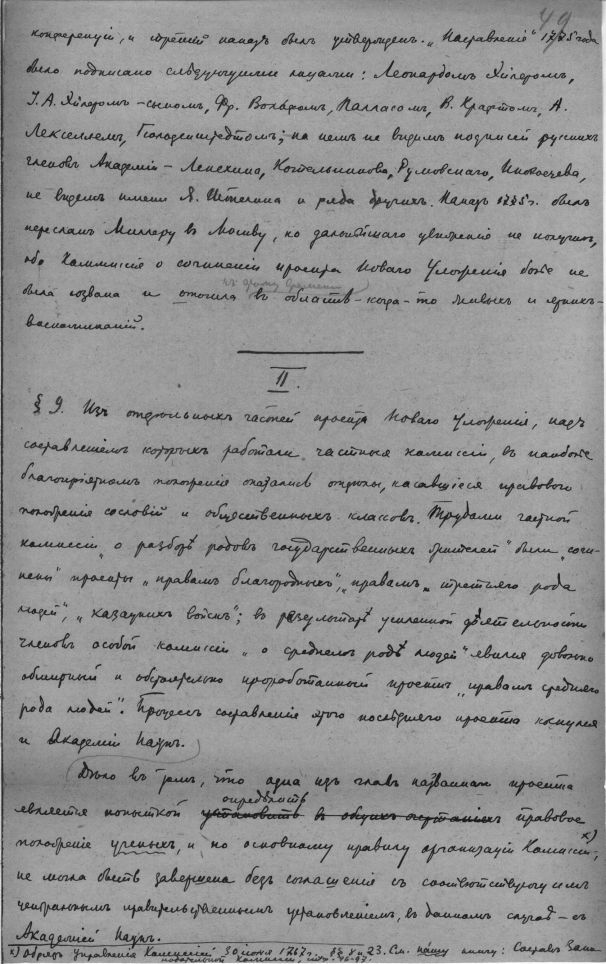 49
конференціи, и третій наказъ былъ утвержденъ. „Наставленіе" 1775 года
было подписано слѣдующими лицами: Леонардомъ Эйлеромъ,
І. А. Эйлеромъ-сыномъ, Фр. Вольфомъ, Палласомъ, В. Крафтомъ, А.
Лекселлемъ, Гюльденштедтомъ; на немъ не видимъ подписей русскихъ
членовъ Академіи – Лепехина, Котельникова, Румовскаго, Иноходцева,
не видимъ имени Я. Штелина и ряда другихъ. Наказъ 1775 г. былъ
пересланъ Миллеру въ Москву, но дальнѣйшаго движенія не получилъ,
ибо Коммиссія о сочиненіи проекта Новаго Уложенія болѣе не
къ тому времени
была созвана и отошла въ область когда-то живыхъ и яркихъ
воспоминаній.
II.
§ 9. Изъ отдѣльныхъ частей проекта Новаго Уложенія, надъ
составленіемъ которыхъ работали частныя комиссіи, въ наиболѣе
благопріятномъ положеніи оказались отдѣлы, касавшіеся правового
положенія сословій и общественныхъ классовъ. Трудами частной
комиссіи „о разборѣ родовъ государственныхъ жителей" были сочи-
нены проекты „правамъ благородныхъ", „правамъ третьяго рода
людей", „казацкихъ войскъ"; въ результатѣ усиленной дѣятельности
членовъ особой комиссіи „о среднемъ родѣ людей" явился довольно
обширный и обстоятельно проработанный проектъ „правамъ средняго
рода людей". Процессъ составленія этого послѣдняго проекта коснулся
и Академіи Наукъ.
Дѣло въ томъ, что одна изъ главъ названнаго проекта
опредѣлить
является попыткой установить въ общихъ чертаніяхъ правовое
положеніе ученыхъ, и по основному правилу организаціи Комиссіи, х)
не могла быть завершена безъ соглашенія съ соотвѣтствующимъ
центральнымъ правительственнымъ установленіемъ, въ данномъ случаѣ – съ
Академіей Наукъ.
х) Обрядъ Управленія Комиссіи 30 іюля 1767 г. 23. См. нашу книгу: Составъ Зако-
нодательной Комиссіи,